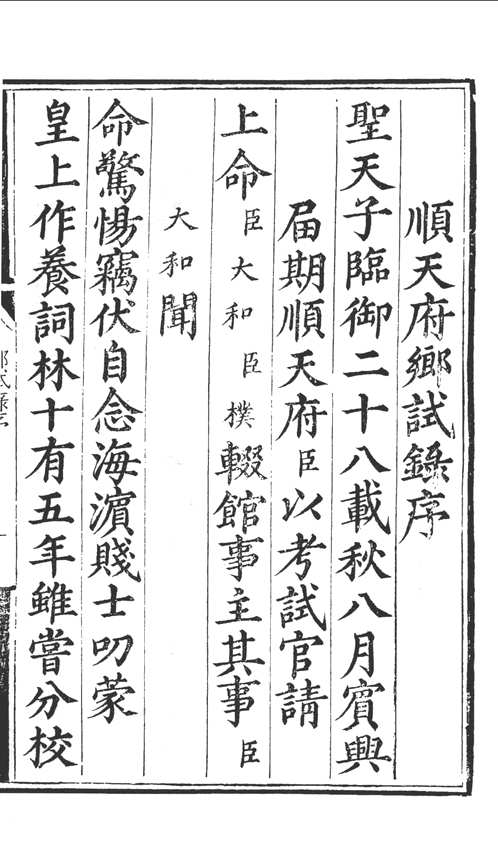 順天府鄉試錄序
聖天子臨御二十八載秋八月賓興
屆期順天府臣以考試官請
上命臣大和臣樸輟館事主其事臣
大和聞
命驚惕竊伏自念海濱賤士叨蒙
皇上作養詞林十有五年雖嘗分校